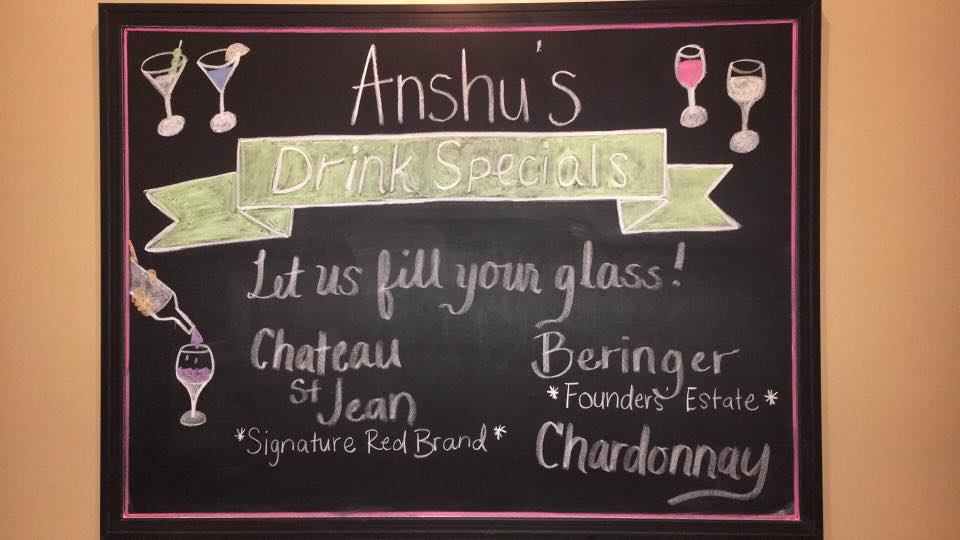 Anshu's
Drink Specials
Let us fill your glass!
Chateau
St Jean
*Signature Red Brand*
Beringer
*Founders' Estate*
Chardonnay